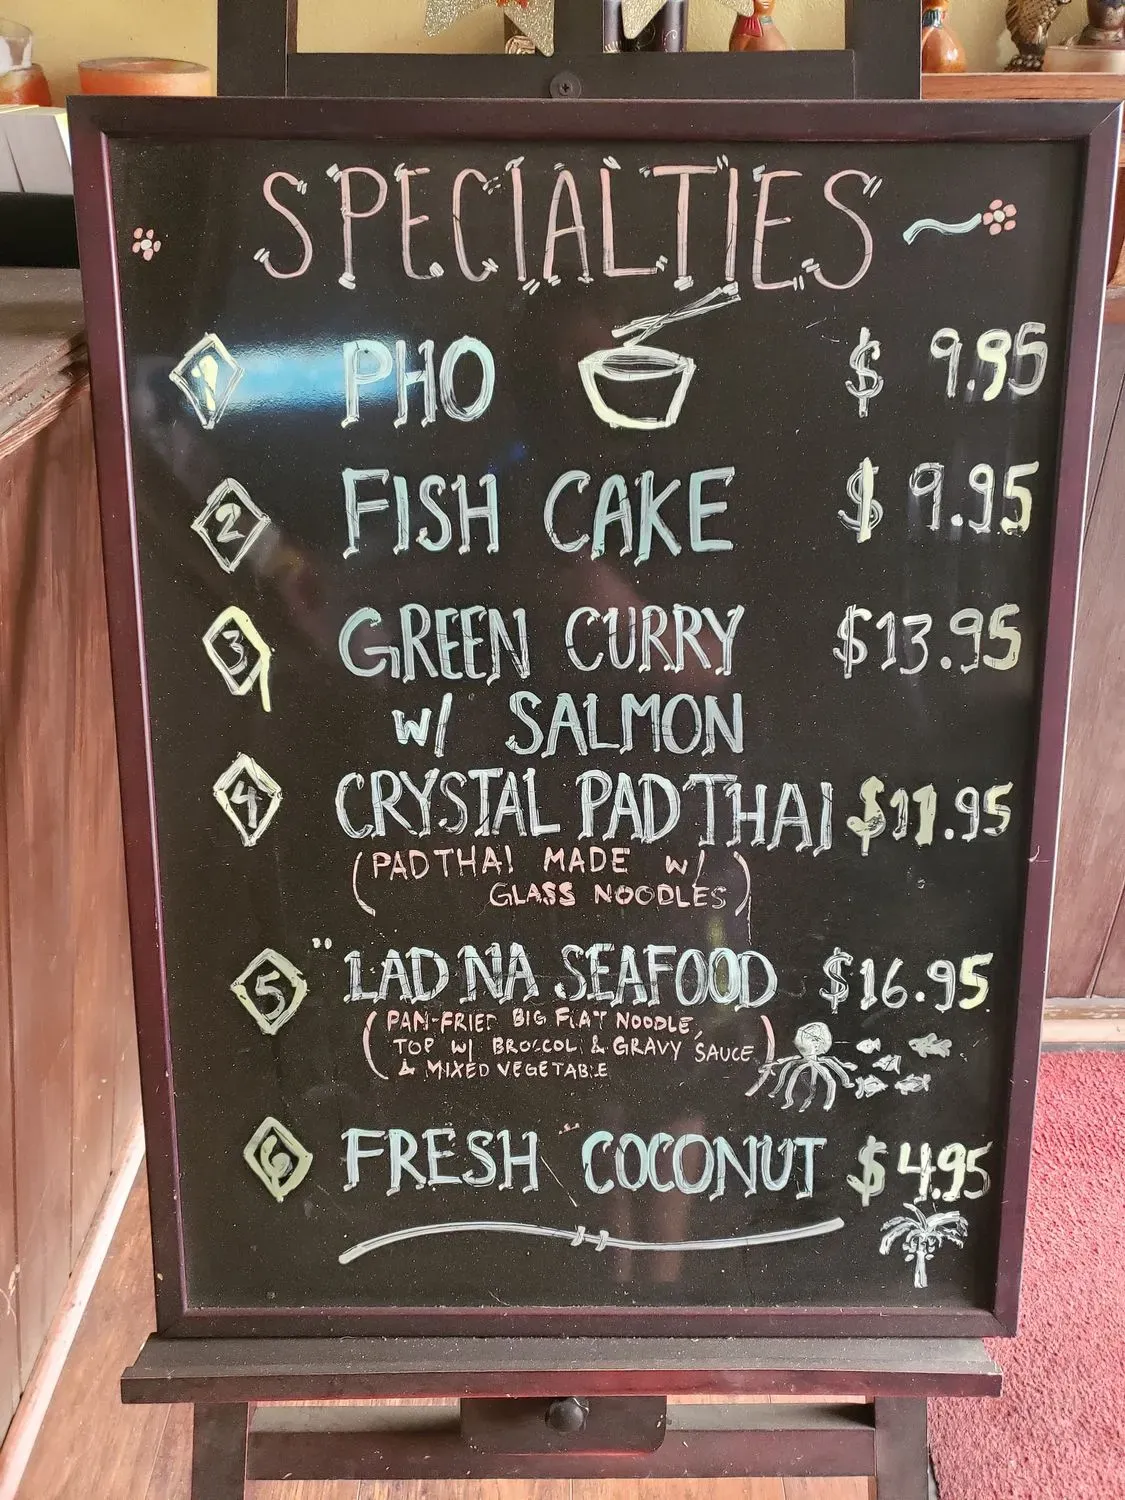 SPECIALTIES
1 PHO $ 9.95
2 FISH CAKE $ 9.95
3 GREEN CURRY $13.95
W/ SALMON
4 CRYSTAL PAD THAI $11.95
(PAD THAI MADE W/
GLASS NOODLES)
5 "LAD NA SEAFOOD $16.95
(PAN-FRIED BIG FLAT NOODLE,
TOP W/ BROCCOLI & GRAVY SAUCE)
& MIXED VEGETABLE
6 FRESH COCONUT $4.95